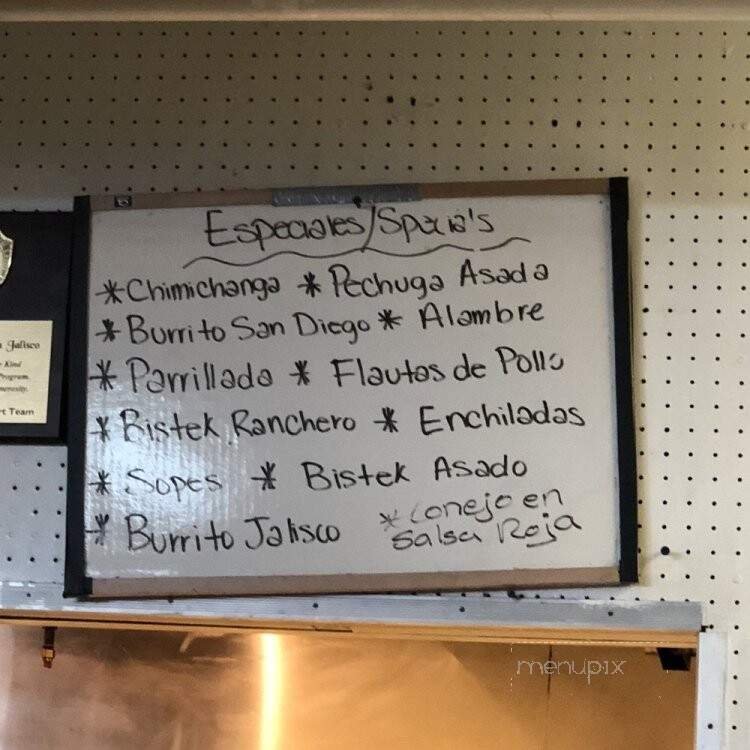 Especiales/Specia's
*Chimichanga *Pechuga Asada
*Burrito San Diego * Alambre
*Parrillada * Flautas de Pollo
*Bistek Ranchero * Enchiladas
*Sopes * Bistek Asado
*Burrito Jalisco *Conejo en
Salsa Roja
Jalisco
Kind
Program.
Team
menupix